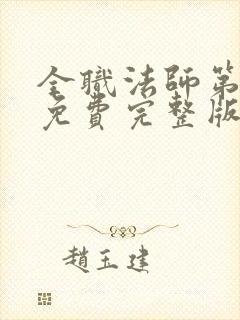 全職法師第
免費完整版
趙玉建